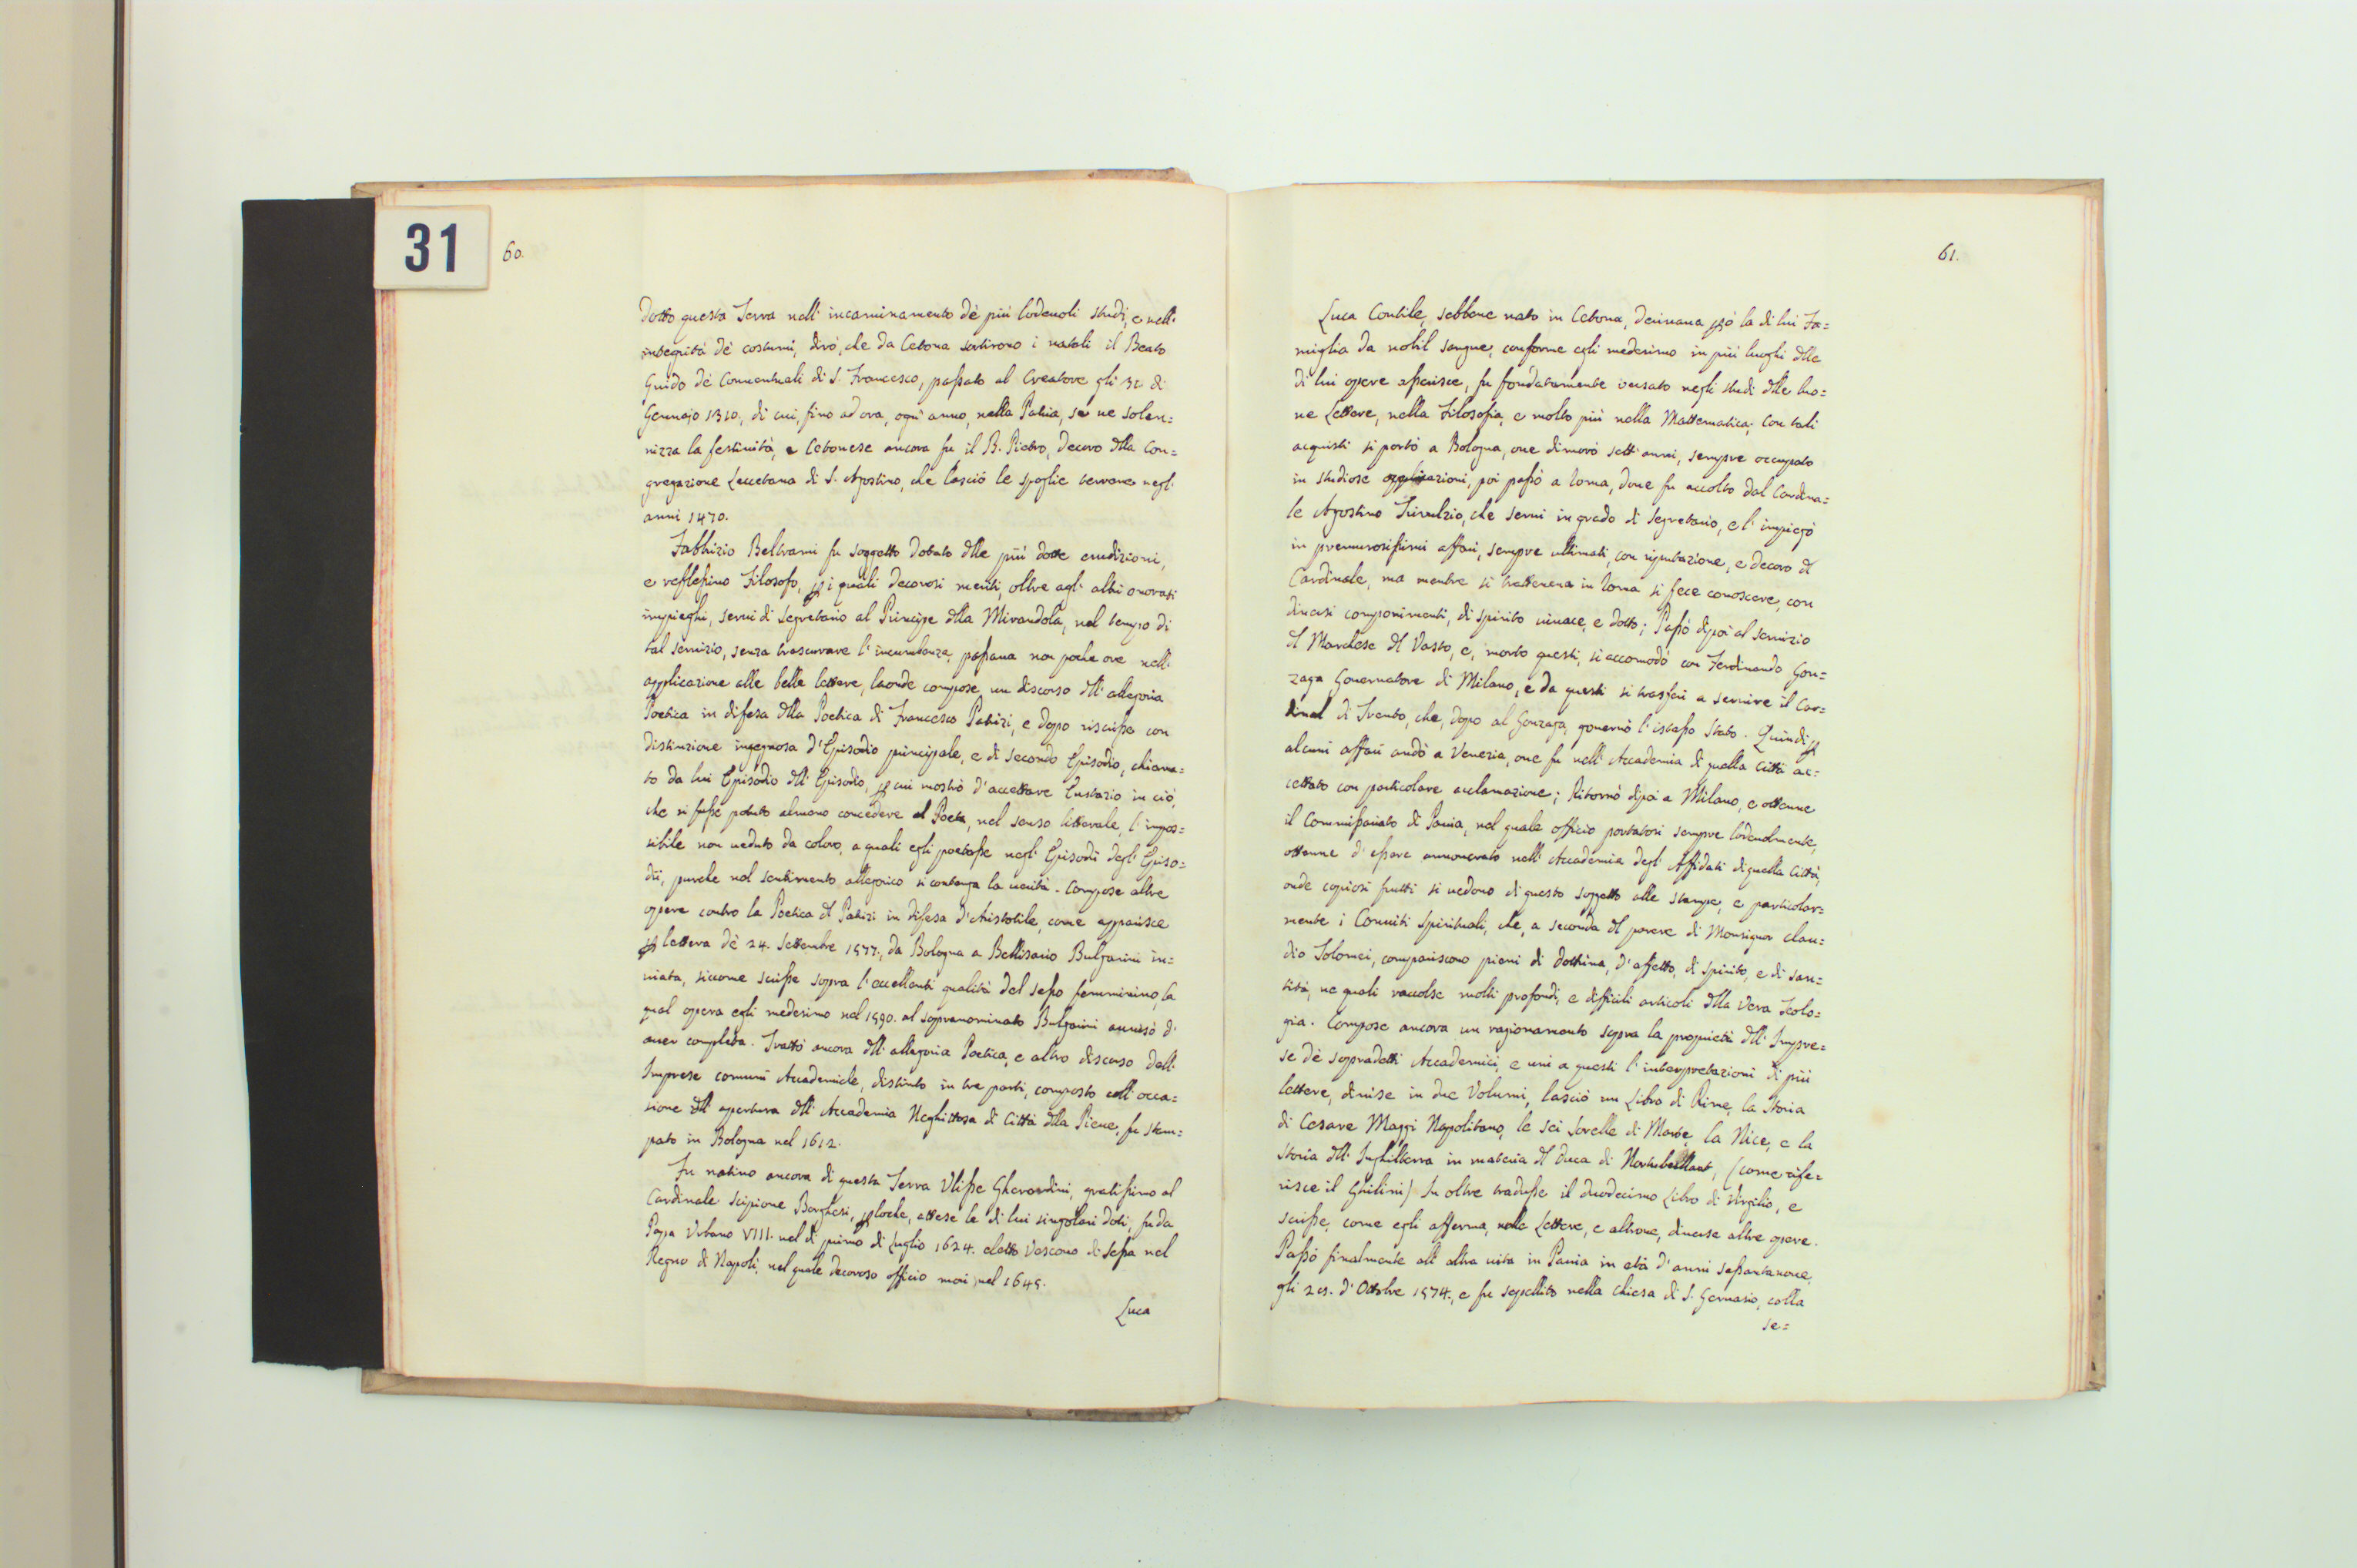 31
60.
dotto questa Terra nell' incaminamento dè più lodeuoli studi, e nell'
integrità dè costumi, dirò, che da Cetona sortirono i natali il Beato
Guido dè Conuentuali di S. Francesco, passato al Creatore gli 31 di
Gennajo 1310, di cui, fino ad ora, ogni anno, nella Patria, se ne solen=
nizza la festiuità, e Cetonese ancora fu il B. Pietro, decoro dlla Con=
gregazione Leccetana di S. Agostino, che lasciò le spoglie terrene negl'
anni 1470.
Fabbrizio Beltrami fu soggetto dotato dlle più dotte erudizioni,
e Filosofo, p i quali decorosi meriti, oltre agl' altri onorati
impieghi, seruì di Segretario al Principe dlla Mirandola, nel tempo di
tal seruizio, senza trascurare l' incumbenza, passaua non poche ore nell'
applicazione alle belle lettere, laonde compose un discorso dll' allegoria
Poetica in difesa dlla Poetica di Francesco Patrizi, e dopo riscrisse con
distinzione ingegnosa d' Episodio principale, e di secondo Episodio, chiama=
to da lui Episodio dll' Episodio, p cui mostrò d' accettare Eustazio in ciò,
che si fusse potuto almeno concedere al Poeta, nel senso litterale, l' impos=
sibile non ueduto da coloro, a quali egli poetasse negl' Episodii degl' Episo=
dii, purche nel sentimento allegorico si contenga la uerità. Compose altre
opere contro la Poetica dl Patrizi in difesa d' Aristotile, come apparisce
p lettera dè 24. Settembre 1577., da Bologna a Bellisario Bulgarini in=
uiata, siccome scrisse sopra l' eccellenti qualità del sesso femminino, la
qual opera egli medesimo nel 1590. al sopranominato Bulgarini auuisò d'
auer completa. Trattò ancora dll' allegoria Poetica, e altro discorso dell'
Imprese comuni Accademiche, distinto in tre parti, composto coll' occa=
sione dll' apertura dll' Accademia Neghittosa di Città dlla Pieue, fu stam=
pato in Bologna nel 1612.
Fu natiuo ancora di questa Terra Ulisse Gherardini, gratissimo al
Cardinale Scipione Borghesi, p loche, attese le di lui singolari doti, fu da
Papa Urbano VIII. nel dì primo di Luglio 1624. eletto Vescouo di Sessa nel
Regno di Napoli, nel quale decoroso officio morì nel 1645.
Luca
61.
Luca Contile, sebbene nato in Cetona, deriuaua pò la di lui Fa=
miglia da nobil sangue, conforme egli medesimo in più luoghi dlle
di lui opere asserisce, fu fondatamente uersato negli studi dlle buo=
ne Lettere, nella Filosofia, e molto più nella Mattematica; Con tali
acquisti si portò a Bologna, oue dimorò sett' anni, sempre occupato
in studiose applicazioni, poi passò a Roma, doue fu accolto dal Cardina=
le Agostino Triuulzio, che seruì in grado di Segretario, e l' impiegò
in premurosissimi affari, sempre ultimati, con riputazione, e decoro dl
Cardinale, ma mentre si tratteneua in Roma si fece conoscere, con
diuersi componimenti, di spirito uiuace, e dotto; Passò dipoi al seruizio
dl Marchese dl Vasto, e, morto questi, si accomodò con Ferdinando Gon=
zaga Gouernatore di Milano, e da questi si trasferì a seruire il Car=
dinal di Trento, che, dopo al Gonzaga, gouernò l' istesso Stato. Quindi p
alcuni affari andò a Venezia, oue fu nell' Accademia di quella Città ac=
cettato con particolare acclamazione; Ritornò dipoi a Milano, e ottenne
il Commissariato di Pauia, nel quale officio portatosi sempre lodeuolmente,
ottenne d' essere annouerato nell' Accademia degl' Affidati di quella Città,
onde copiosi frutti si uedono di questo soggetto alle stampe, e particolar=
mente i Conuiti Spirituali, che, a seconda dl parere di Monsignor Clau=
dio Tolomei, compariscono pieni di dottrina, d' affetto, di spirito, e di san=
tità, ne quali raccolse molti profondi, e difficili articoli dlla Vera Teolo=
gia. Compose ancora un ragionamento sopra la proprietà dll' Impre=
se dè sopradetti Accademici, e unì a questi l' interpretazioni di più
lettere, diuise in due Volumi, lasciò un Libro di Rime, la Storia
di Cesare Maggi Napolitano, le sei Sorelle di Marte, la Nice, e la
Storia dll' Inghilterra in materia dl Duca di (come rife=
risce il Ghilini) In oltre tradusse il duodecimo Libro di Virgilio, e
scrisse, come egli afferma, nelle Lettere, e altroue, diuerse altre opere.
Passò finalmente all' altra uita in Pauia in età d' anni sessantanoue,
gli d' Ottobre 1574., e fu seppellito nella Chiesa di S. Geruasio, colla
se=